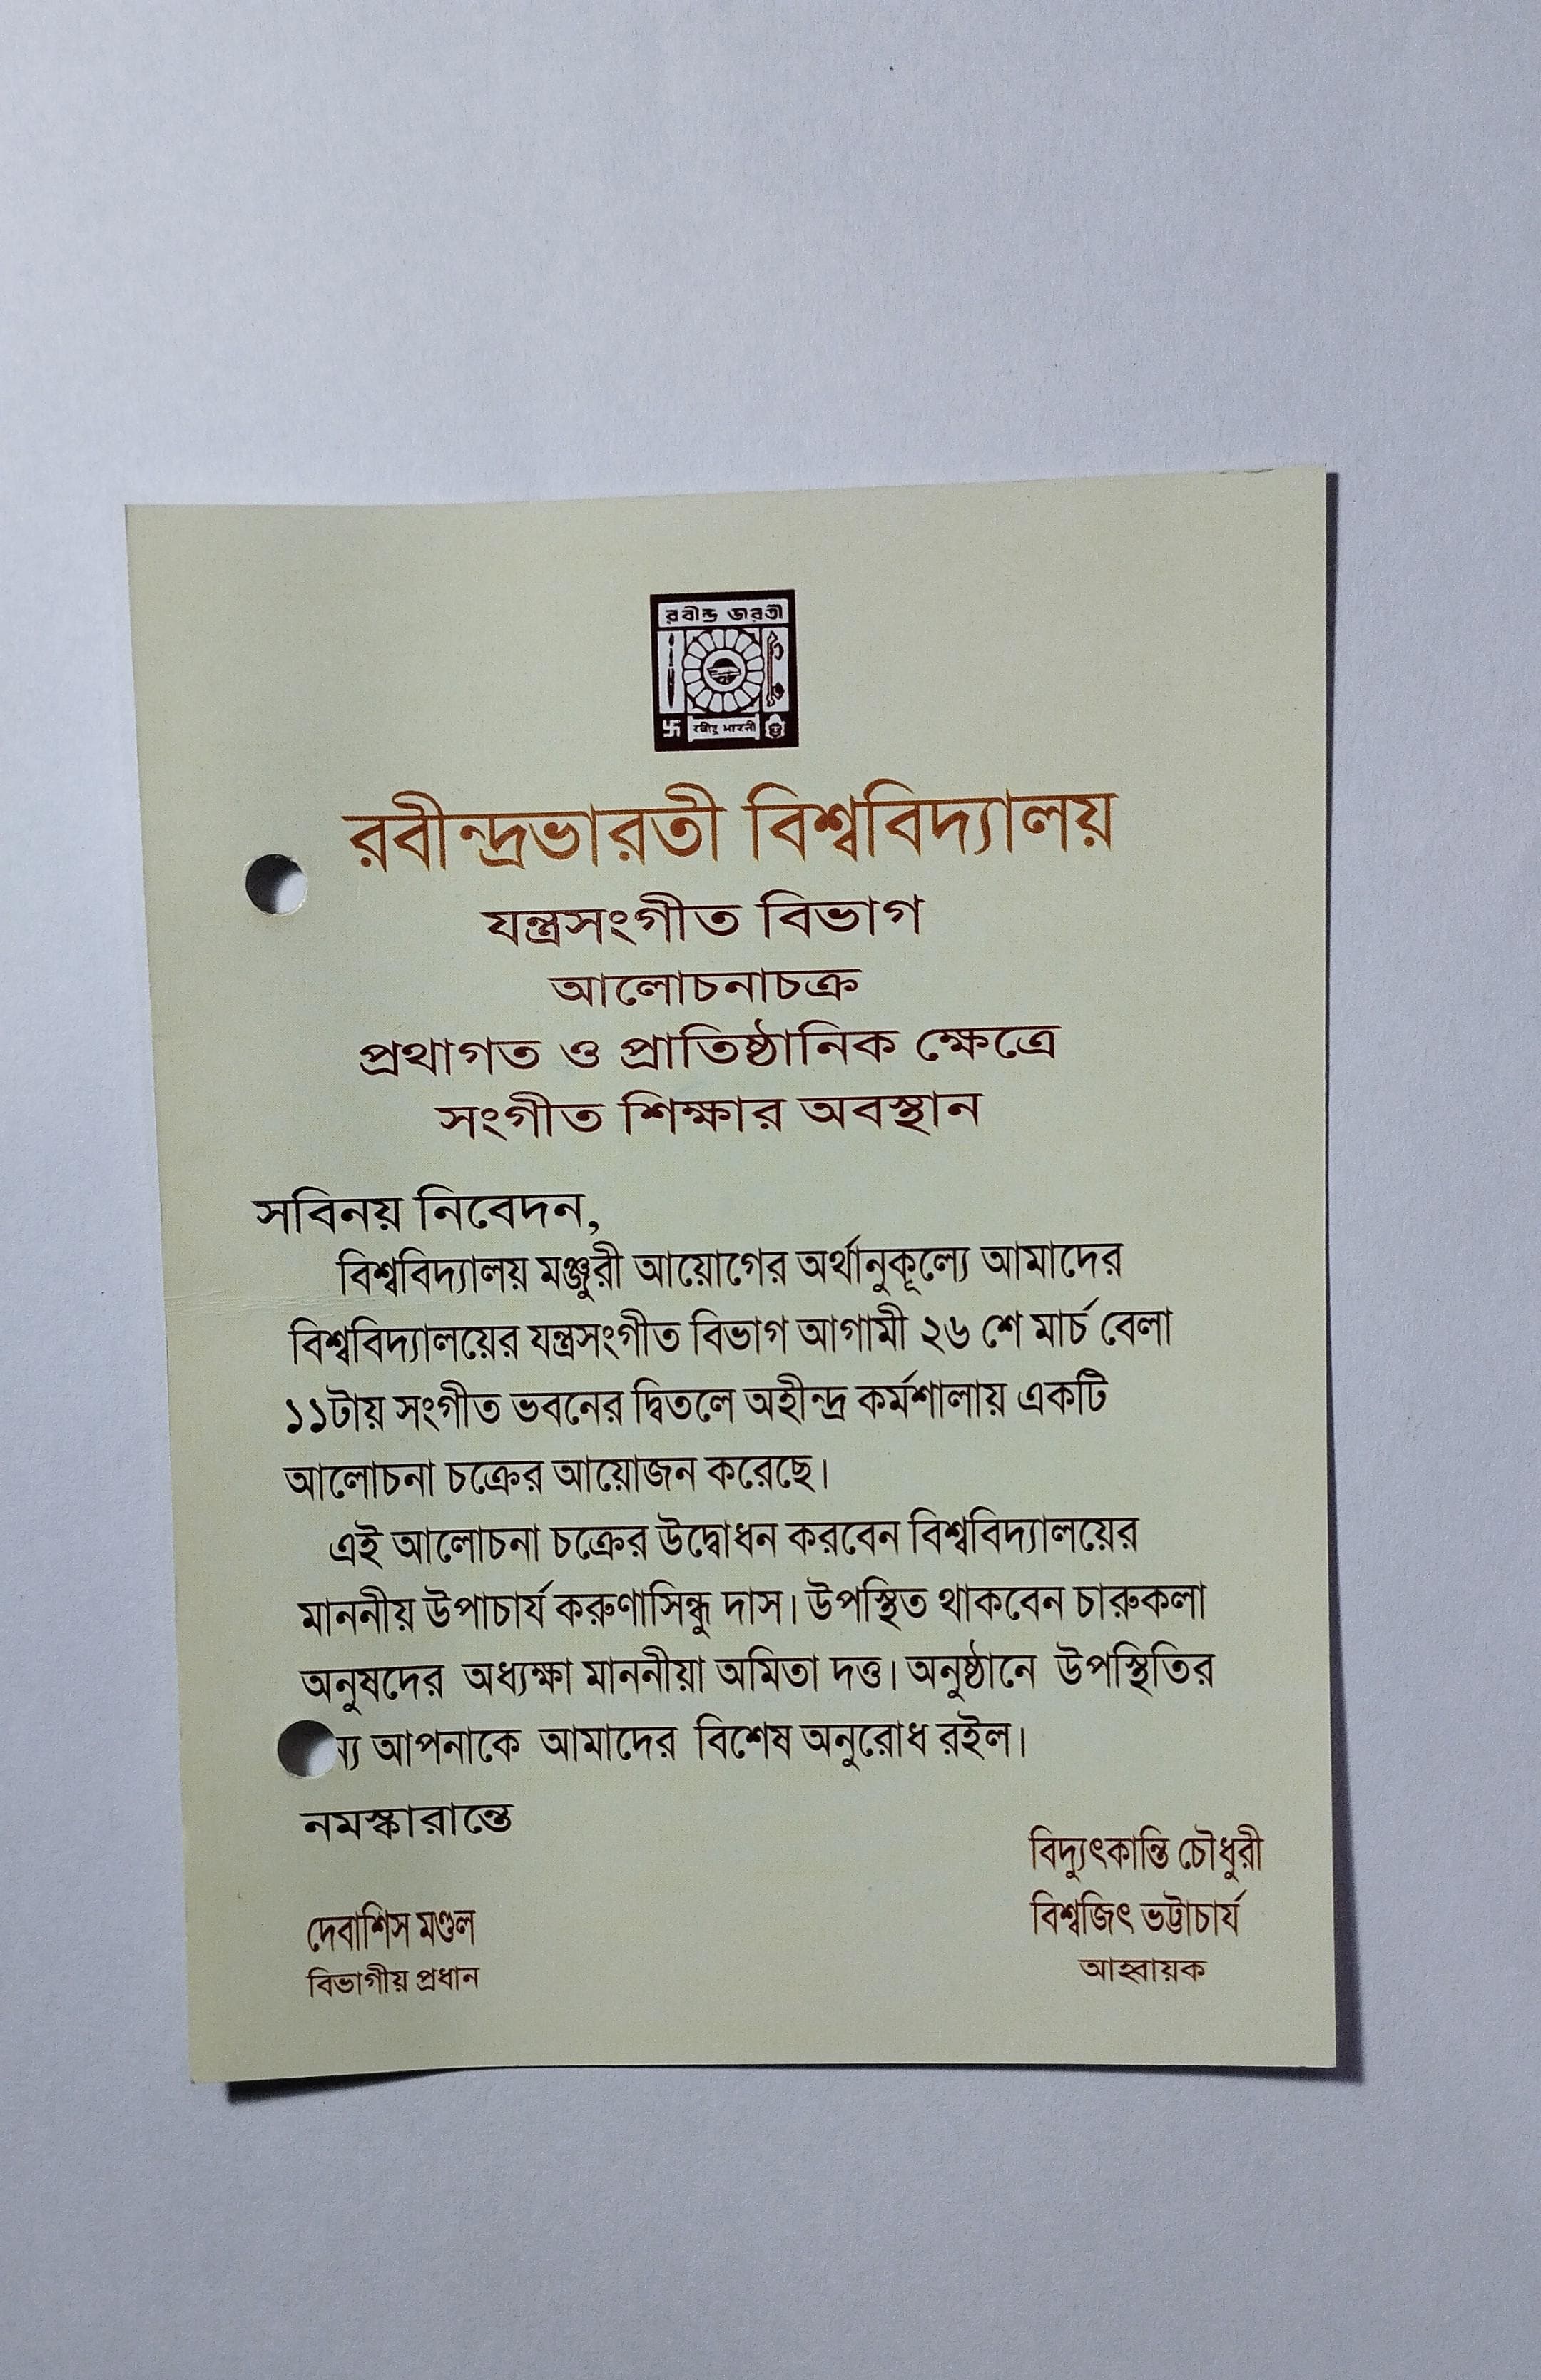 রবীন্দ্র ভারতী
রবীন্দ্র भारती
রবীন্দ্রভারতী বিশ্ববিদ্যালয়
যন্ত্রসংগীত বিভাগ
আলোচনাচক্র
প্রথাগত ও প্রাতিষ্ঠানিক ক্ষেত্রে
সংগীত শিক্ষার অবস্থান
সবিনয় নিবেদন,
বিশ্ববিদ্যালয় মঞ্জুরী আয়োগের অর্থানুকূল্যে আমাদের
বিশ্ববিদ্যালয়ের যন্ত্রসংগীত বিভাগ আগামী ২৬ শে মার্চ বেলা
১১টায় সংগীত ভবনের দ্বিতলে অহীন্দ্র কর্মশালায় একটি
আলোচনা চক্রের আয়োজন করেছে।
এই আলোচনা চক্রের উদ্বোধন করবেন বিশ্ববিদ্যালয়ের
মাননীয় উপাচার্য করুণাসিন্ধু দাস। উপস্থিত থাকবেন চারুকলা
অনুষদের অধ্যক্ষা মাননীয়া অমিতা দত্ত। অনুষ্ঠানে উপস্থিতির
আপনাকে আমাদের বিশেষ অনুরোধ রইল।
নমস্কারান্তে
বিদ্যুৎকান্তি চৌধুরী
বিশ্বজিৎ ভট্টাচার্য
আহ্বায়ক
দেবাশিস মণ্ডল
বিভাগীয় প্রধান